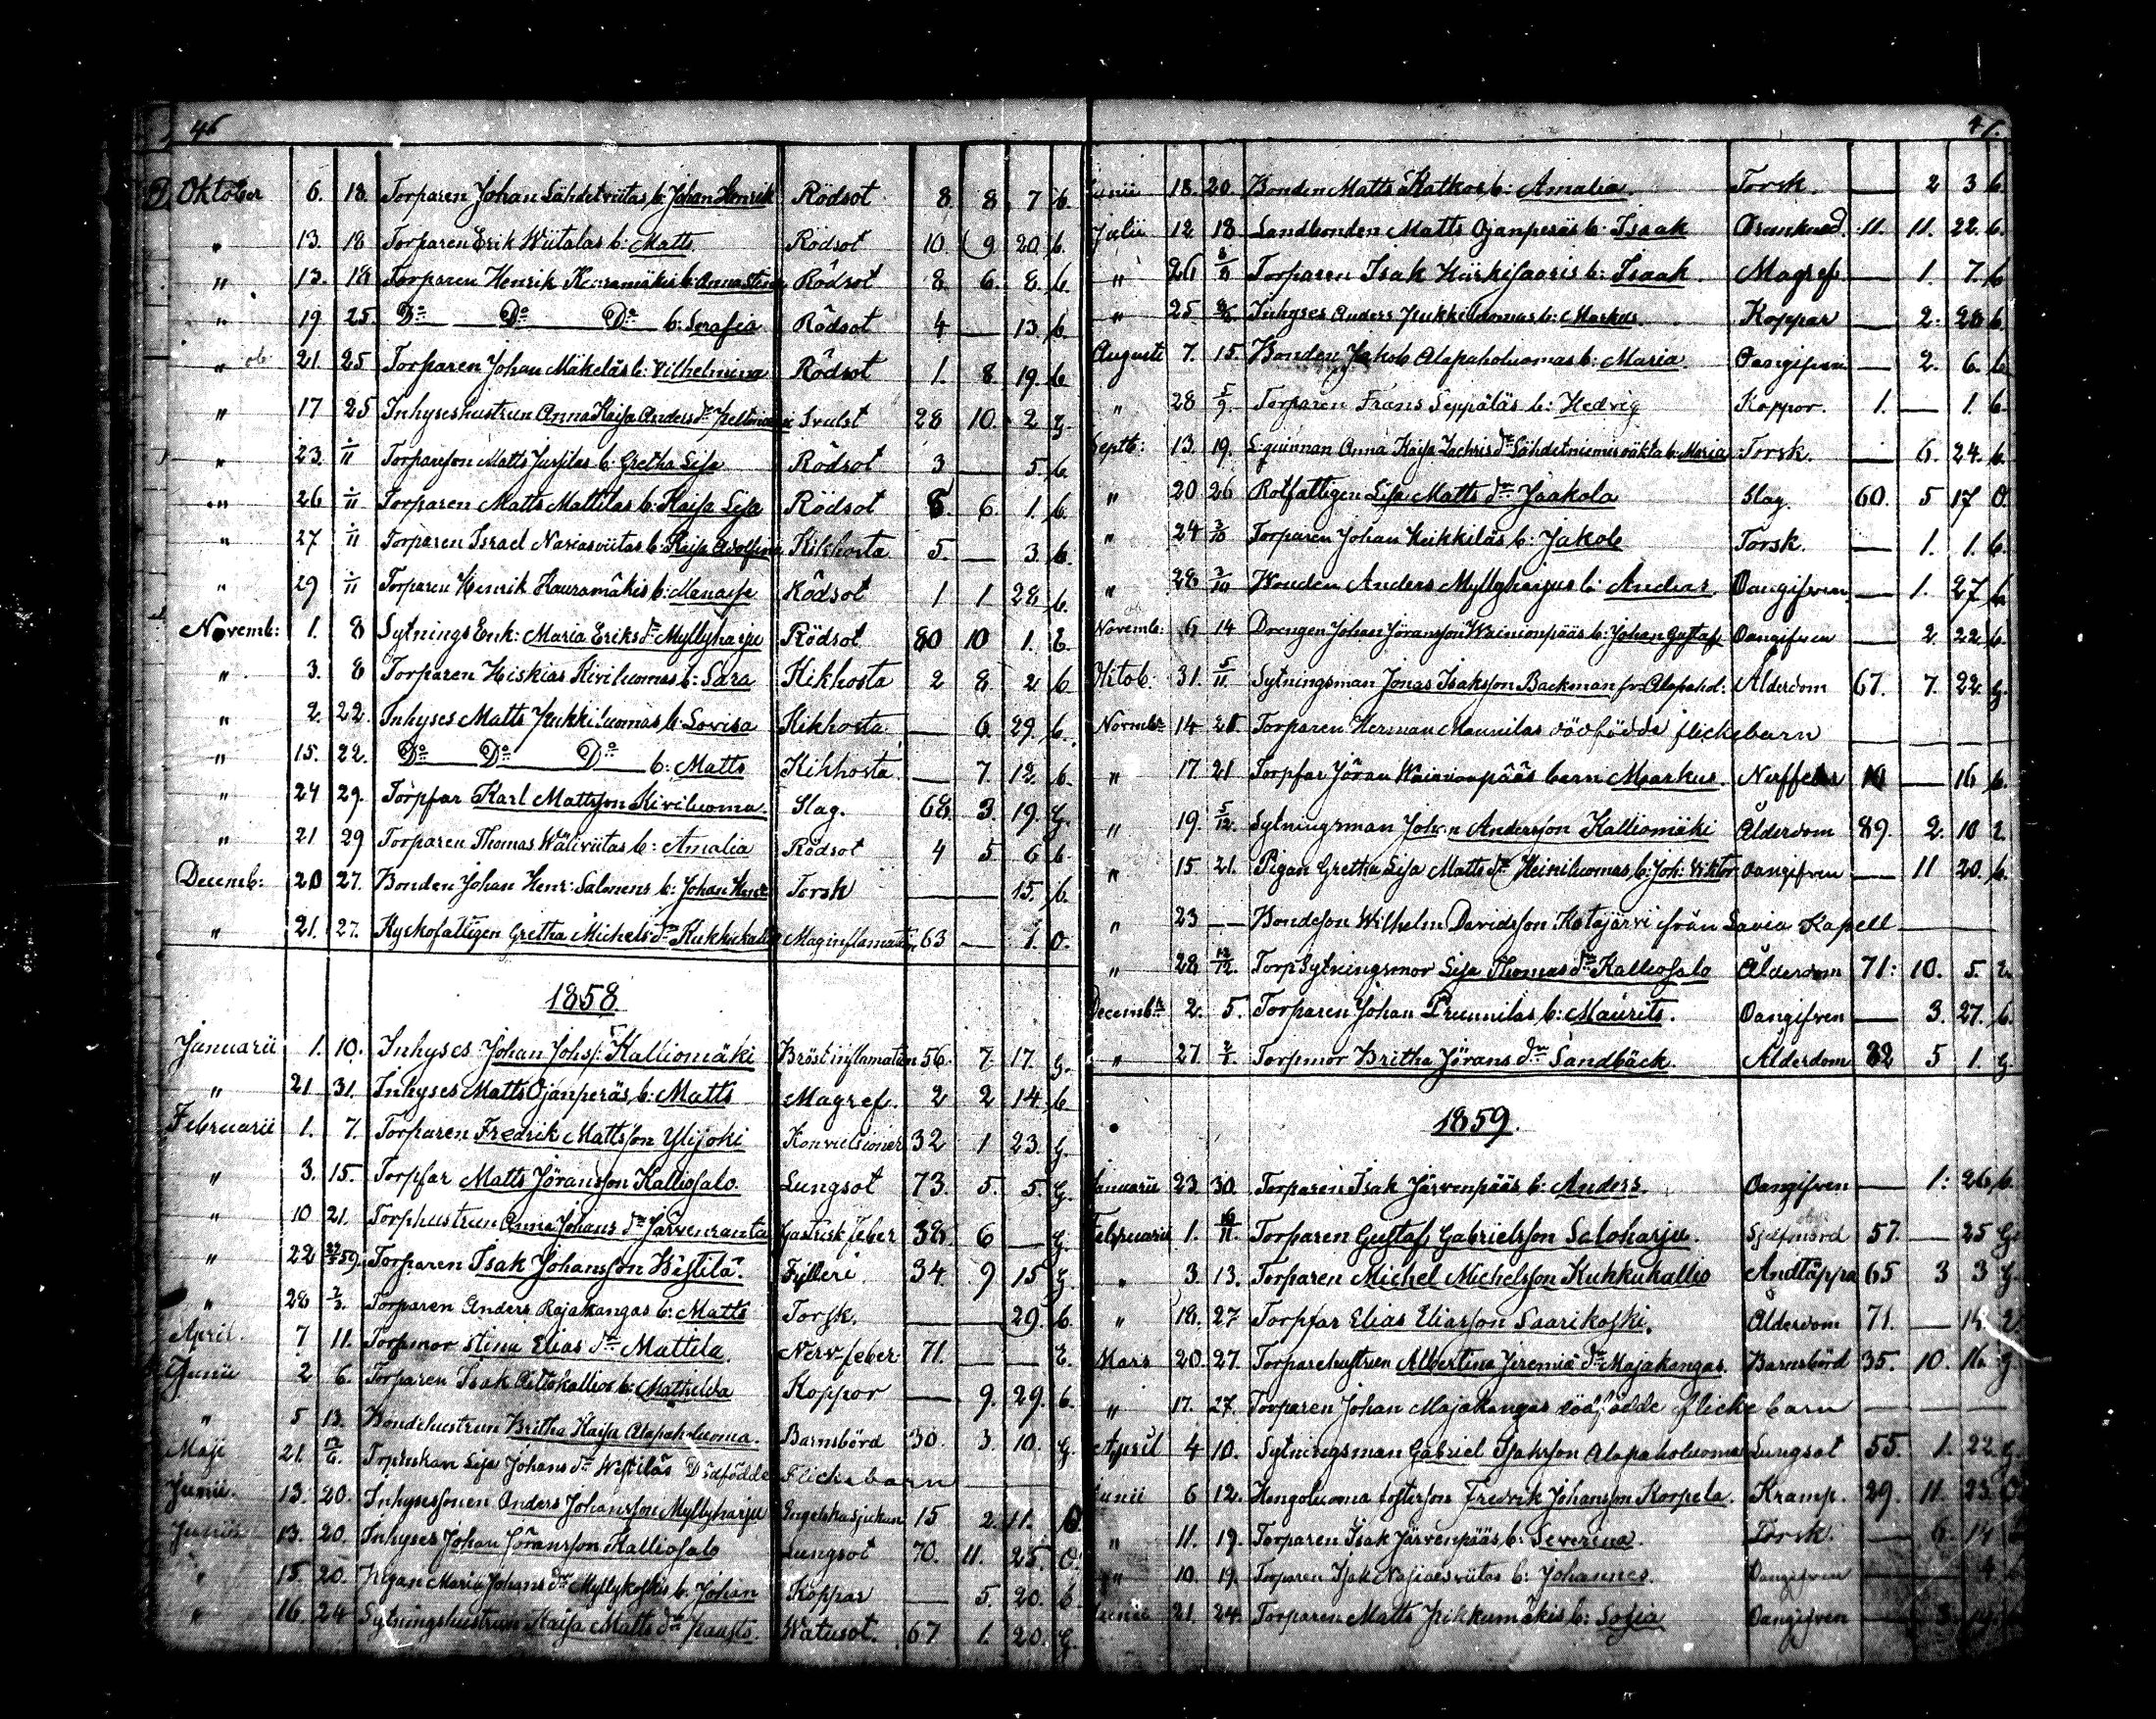 46
Oktober 6. 18. Torparen Johan Lähdetviitas b: Johan Henrik Rödsot 8. 8. 7. b.
" 13. 18 Torparen Erik Wiitalas b: Matts Rödsot 10. 9 20. b.
" 13. 18 Torparen Henrik Kauramäkis b: Anna Stina Rödsot 8 6. 8. b.
" 19. 25. Do Do Do b: Serafia Rödsot 4 — 13. b.
" 21. 25 Torparen Johan Mäkeläs b: Vilhelmina Rödsot 1. 8. 19. b
" 17 25 Inhyseshustrun Anna Kaisa Anders dr Svulst 28 10. 2 G.
" 23. 1/11 Torparson Matts Jussilas b: Gretha Lisa Rödsot 3 — 5. b.
" 26 1/11 Torparen Matts Mattilas b: Kaisa Lisa Rödsot 8. 6. 1. b.
" 27 1/11 Torparen Israel Nariasviitas b: Kaisa Adolfina Kikhosta 5. — 3. b.
" 29 1/11 Torparen Henrik Kauramäkis b: Manasse Rödsot 1 1 28 b.
Novemb: 1. 8 Sytnings Enk: Maria Eriks dr Myllyharju Rödsot 80 10 1. E.
" 3. 8 Torparen Hiskias Kiviluomas b: Sara Kikhosta 2 8. 2 b
" 2. 22. Inhyses Matts Pukkiluomas b: Lovisa Kikhosta — 6. 29. b.
" 15. 22. Do Do Do b: Matts Kikhosta — 7. 12. b.
" 24 29. Torpfar Karl Mattsson Kiviluoma. Slag. 68. 3. 19. G.
" 21 29 Torparen Thomas Wäliviitas b: Amalia Rödsot 4 5 6 b.
Decemb: 20 27. Bonden Johan Henr: Salonens b: Johan Henr: Torsk — — 15. b.
" 21. 27. Kyrkofattigen Gretha Michels dr Kukkukallio Maginflamation 63 — 1. O.
1858
Januarii 1. 10. Inhyses Johan Johs: Kalliomäki Bröstinflamation 56. 7. 17. G.
" 21 31. Inhyses Matts Ojanperäs, b: Matts Magref. 2 2 14. b
Februarii 1. 7. Torparen Fredrik Mattsson Ylijoki Konvulsioner 32 1 23. G.
" 3. 15. Torpfar Matts Jöransson Kalliosalo. Lungsot 73. 5. 5. G.
" 10 21. Torphustrun Anna Johans dr Järvenranta Gastrisk feber 38. 6 — G.
" 22 Torparen Isak Johansson Wästilä. Fylleri. 34. 9 15 G.
" 28 7/3. Torparen Anders Rajakangas b: Matts Torsk. — — 29. b.
April. 7 11. Torpmor Stina Elias dr Mattila. Nervfeber 71. — — E.
Junii 2 6. Torparen Isak Aittokallios b: Mathilda Koppor — 9. 29. b.
" 5 13. Bondehustrun Britha Kaisa Alapaholuoma. Barnsbörd 30. 3. 10. G.
Maji 21. 13/6. Torphustrun Lisa Johans dr Westiläs Dödfödde Flickebarn
Junii. 13. 20. Inhysessonen Anders Johansson Myllyharju Engelska sjukan 15 2. 11. O.
Junii 13. 20. Inhyses Johan Jöransson Kalliosalo Lungsot 70. 11. 25. O.
" 15. 20. Pigan Maria Johans dr Myllykoskis b: Johan Koppar — 5. 20. b.
" 16. 24 Sytningshustrun Kaisa Matts dr Paasto. Watusot. 67 1. 20. G.
47.
Junii 18. 20. Bonden Matts Katkos b: Amalia. Torsk. — 2 3 b.
Julii 12 18 Landbonden Matts Ojanperäs b: Isaak Drunknad. 11. 11. 22. b.
" 26 8/8 Torparen Isak Härkisaaris b: Isaak. Magref — 1. 7. b
" 25 Inhyses Anders Pukkiluomas b: Markus. Koppar — 2. 28 b.
Augusti 7. 15. Bonden Jakob Alapaholuomas b: Maria. Oangifven — 2. 6. b.
" 28 5/9. Torparen Frans Seppäläs b: Hedvig Koppor. 1. — 1. b.
Septb: 13. 19. Lqvinnan Anna Kaisa Zachris dr Lähdetniemis oäkta b: Maria Torsk. — 6. 24. b.
" 20 26 Rotfattigen Lisa Matts dr Jaakola Slag. 60. 5 17 O.
" 24 3/10 Torparen Johan Heikkiläs b: Jakob Torsk. — 1. 1. b.
" 28 3/10 Bonden Anders Myllyharjus b: Andras. Oangifven — 1. 27 b
Novemb: 6 14 Drengen Johan Jöransson Wainionpääs b: Johan Gustaf Oangifven — 2. 22 b.
Oktob: 31. 5/11. Sytningsman Jonas Isaksson Backman fr. Alapahol: Ålderdom 67. 7. 22. G.
Novmbr 14 21. Torparen Herman Maunilas dödfödde flickebarn
" 17 21 Torpfar Jöran Wainionpääs barn Markus. — 16 b.
" 19. 5/12. Sytningsman Johan Andersson Kalliomäki Ålderdom 89. 2. 10
" 15 21. Pigan Gretha Lisa Matts dr Heiniluomas, b: Joh: Viktor Oangifven — 11 20. b.
" 23 — Bondeson Wilhelm Davidsson Kotajärvi från Lavia Kapell
" 28 12/12. TorpSytningsmor Lisa Thomas dr Kalliosalo Ålderdom 71: 10. 5.
Decembr 2. 5. Torparen Johan Prunnilas b: Maurits. Oangifven — 3. 27. b.
" 27. 2/1. Torpmor Britha Jörans dr Sandbäck. Ålderdom 82 5 1. G
1859.
Januarii 23. 30. Torparen Isak Järvenpääs b: Anders. Oangifven — 1: 26 b.
Februarii 1. Torparen Gustaf Gabrielsson Saloharju. Sjelfmord 57. — 25 G.
" 3. 13. Torparen Michel Michelsson Kukkukallio Andtäppa 65 3 3 G.
" 18. 27 Torpfar Elias Eliasson Saarikoski. Ålderdom 71. —
Mars 20. 27. Torparehustrun Albertina Jeremia dr Majakangas. Barnsbörd 35. 10. 16. G.
" 17. 27. Torparen Johan Majakangas dödfödde flickebarn
April 4 10. Sytningsman Gabriel Isaksson Alapaholuoma Lungsot 55. 1. 22. G.
Junii 6 12. Kangoluoma fosterson Fredrik Johansson Korpela. Kramp. 29. 11. 23. O
" 11. 19. Torparen Isak Järvenpääs b: Severina. Torsk. — 6. 14
" 10. 19. Torparen Isak b: Johannes. Oangifven — — 4
Junii 21. 24. Torparen Matts Pikkumäkis b: Sofia Oangifven —